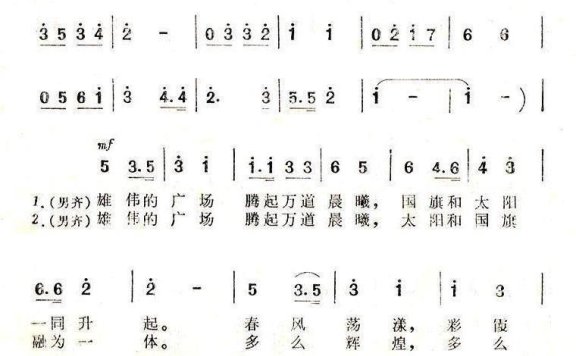 3̇ 5 3̇ 4̇ | 2̇ - | 0 3̇ 3̇ 2̇ | 1̇ 1̇ | 0 2̇ 1̇ 7 | 6 6 |
0 5 6 1̇ | 3̇ 4̇.4̇ | 2̇. 3̇ | 5.5 2̇ | 1̇ - | 1̇ - ) |
mf
5 3.5 | 3̇ 1̇ | 1̇.1̇ 3 3 | 6 5 | 6 4.6 | 4̇ 3̇ |
1.(男齐)雄伟的广场 腾起万道晨曦，国旗和太阳
2.(男齐)雄伟的广场 腾起万道晨曦，太阳和国旗
6.6 2̇ | 2̇ - | 5 3.5 | 3̇ 1̇ | 1̇ 3 |
一同升 起。 春风荡漾，彩霞
融为一 体。 多么辉煌，多么